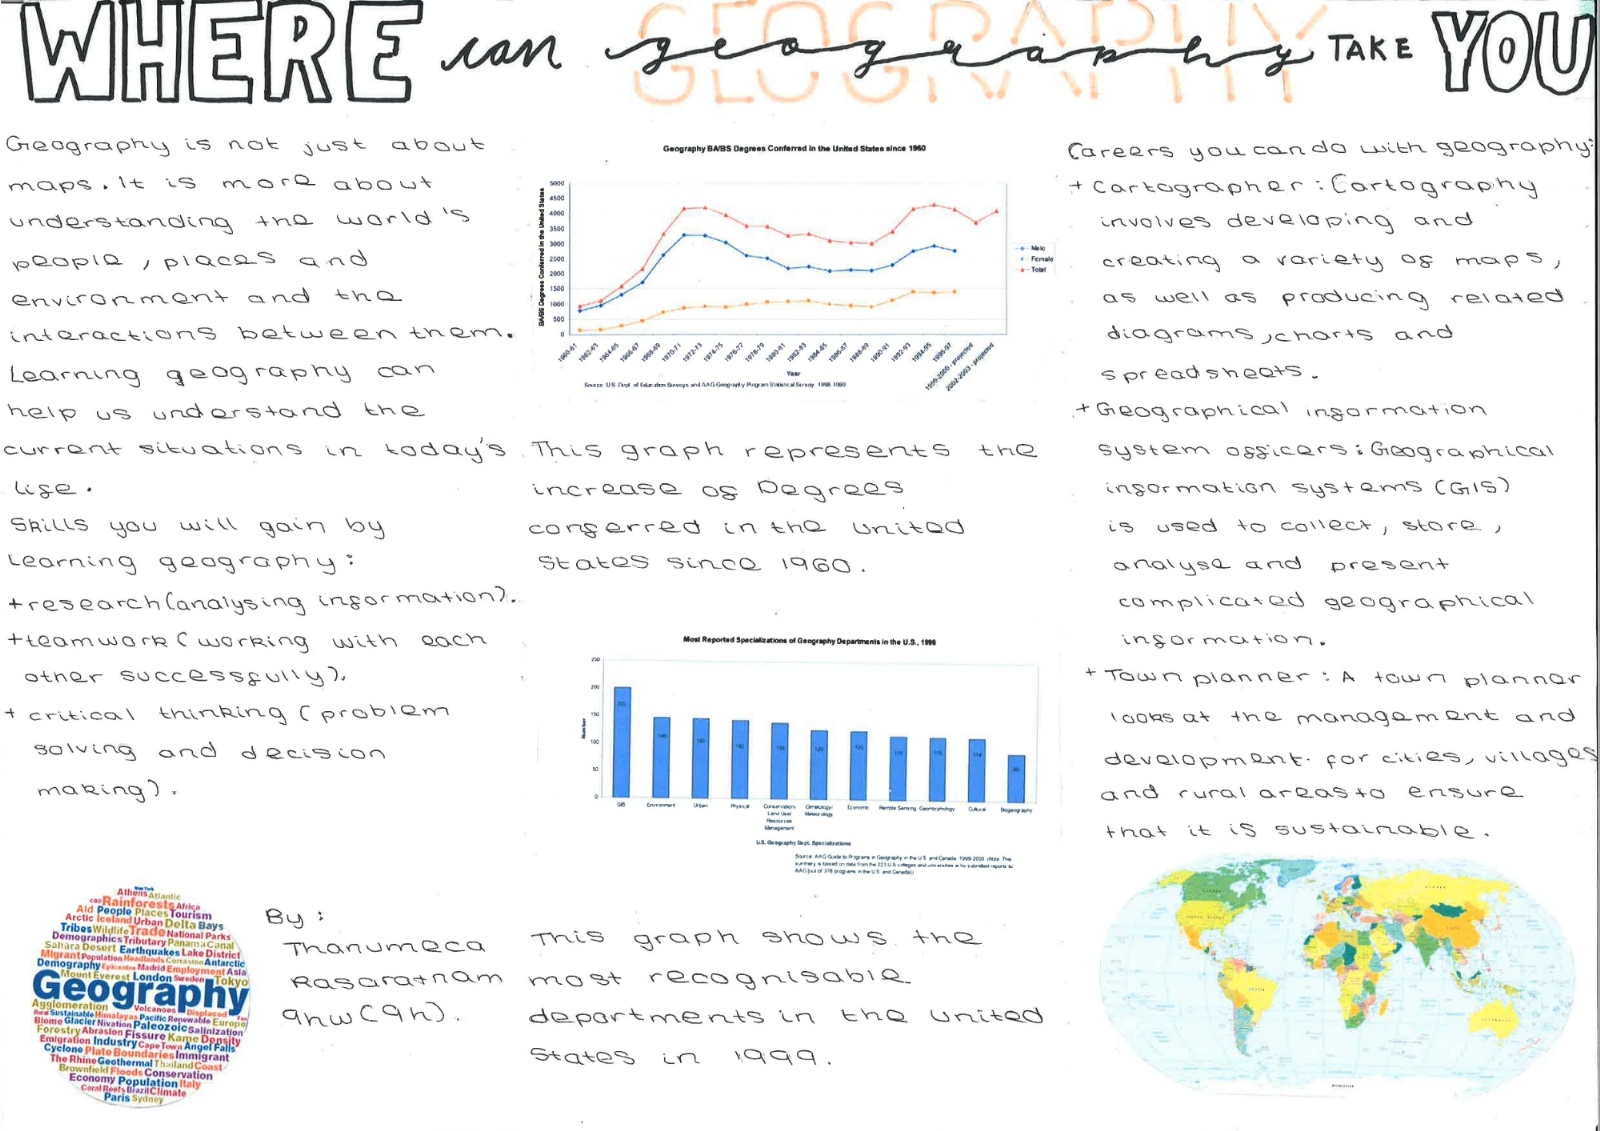 WHERE can geography TAKE YOU
GEOGRAPHY
Geography is not just about
maps. It is more about
understanding the world's
people, places and
environment and the
interactions between them.
Learning geography can
help us understand the
current situations in today's
life.
Skills you will gain by
learning geography:
+research(analysing information).
+teamwork(working with each
other successfully).
+ critical thinking (problem
solving and decision
making).
Geography BA/BS Degrees Conferred in the United States since 1960
BA/BS Degrees Conferred in the United States
5000
4500
4000
3500
3000
2500
2000
1500
1000
500
0
1960-61
1962-63
1964-65
1966-67
1968-69
1970-71
1972-73
1974-75
1976-77
1978-79
1980-81
1982-83
1984-85
1986-87
1988-89
1990-91
1992-93
1994-95
1996-97
1999-2000 - projected
2002-2003 - projected
Year
Male
Female
Total
Source: U.S. Dept. of Education Surveys and AAG Geography Program Statistical Survey, 1998-1999
This graph represents the
increase of Degrees
conferred in the United
States since 1960.
Most Reported Specializations of Geography Departments in the U.S., 1999
Number
250
200
150
100
50
0
GIS
Environment
Urban
Physical
Conservation/
Land Use/
Resources
Management
Climatology/
Meteorology
Economic
Remote Sensing
Geomorphology
Cultural
Biogeography
U.S. Geography Dept. Specializations
Source: AAG Guide to Programs in Geography in the U.S. and Canada 1999-2000 (Note: This
summary is based on data from the 223 U.S. colleges and universities who submitted reports to
AAG [out of 378 programs in the U.S. and Canada])
This graph shows the
most recognisable
departments in the United
States in 1999.
Careers you can do with geography:
+ Cartographer: Cartography
involves developing and
creating a variety of maps,
as well as producing related
diagrams, charts and
spreadsheets.
+Geographical information
system officers: Geographical
information systems (GIS)
is used to collect, store,
analyse and present
complicated geographical
information.
+ Town planner: A town planner
looks at the management and
development for cities, villages
and rural areas to ensure
that it is sustainable.
New York
Athens Atlantic
Rainforests Africa
Aid People Places Tourism
Arctic Iceland Urban Delta Bays
Tribes Wildlife Trade National Parks
Demographics Tributary Panama Canal
Sahara Desert Earthquakes Lake District
Migrant Population Headlands Corrasion Antarctic
Demography Epicentre Madrid Employment Asia
Mount Everest London Sweden Tokyo
Geography
Agglomeration Volcanoes Displaced
Sustainable Himalayas Pacific Renewable Europe
Biome Glacier Nivation Paleozoic Salinization
Forestry Abrasion Fissure Kame Density
Emigration Industry Cape Town Angel Falls
Cyclone Plate Boundaries Immigrant
The Rhine Geothermal Thailand Coast
Brownfield Floods Conservation
Economy Population Italy
Coral Reefs Brazil Climate
Paris Sydney
By:
Thanumeca
Rasaratnam
9hw(9h).